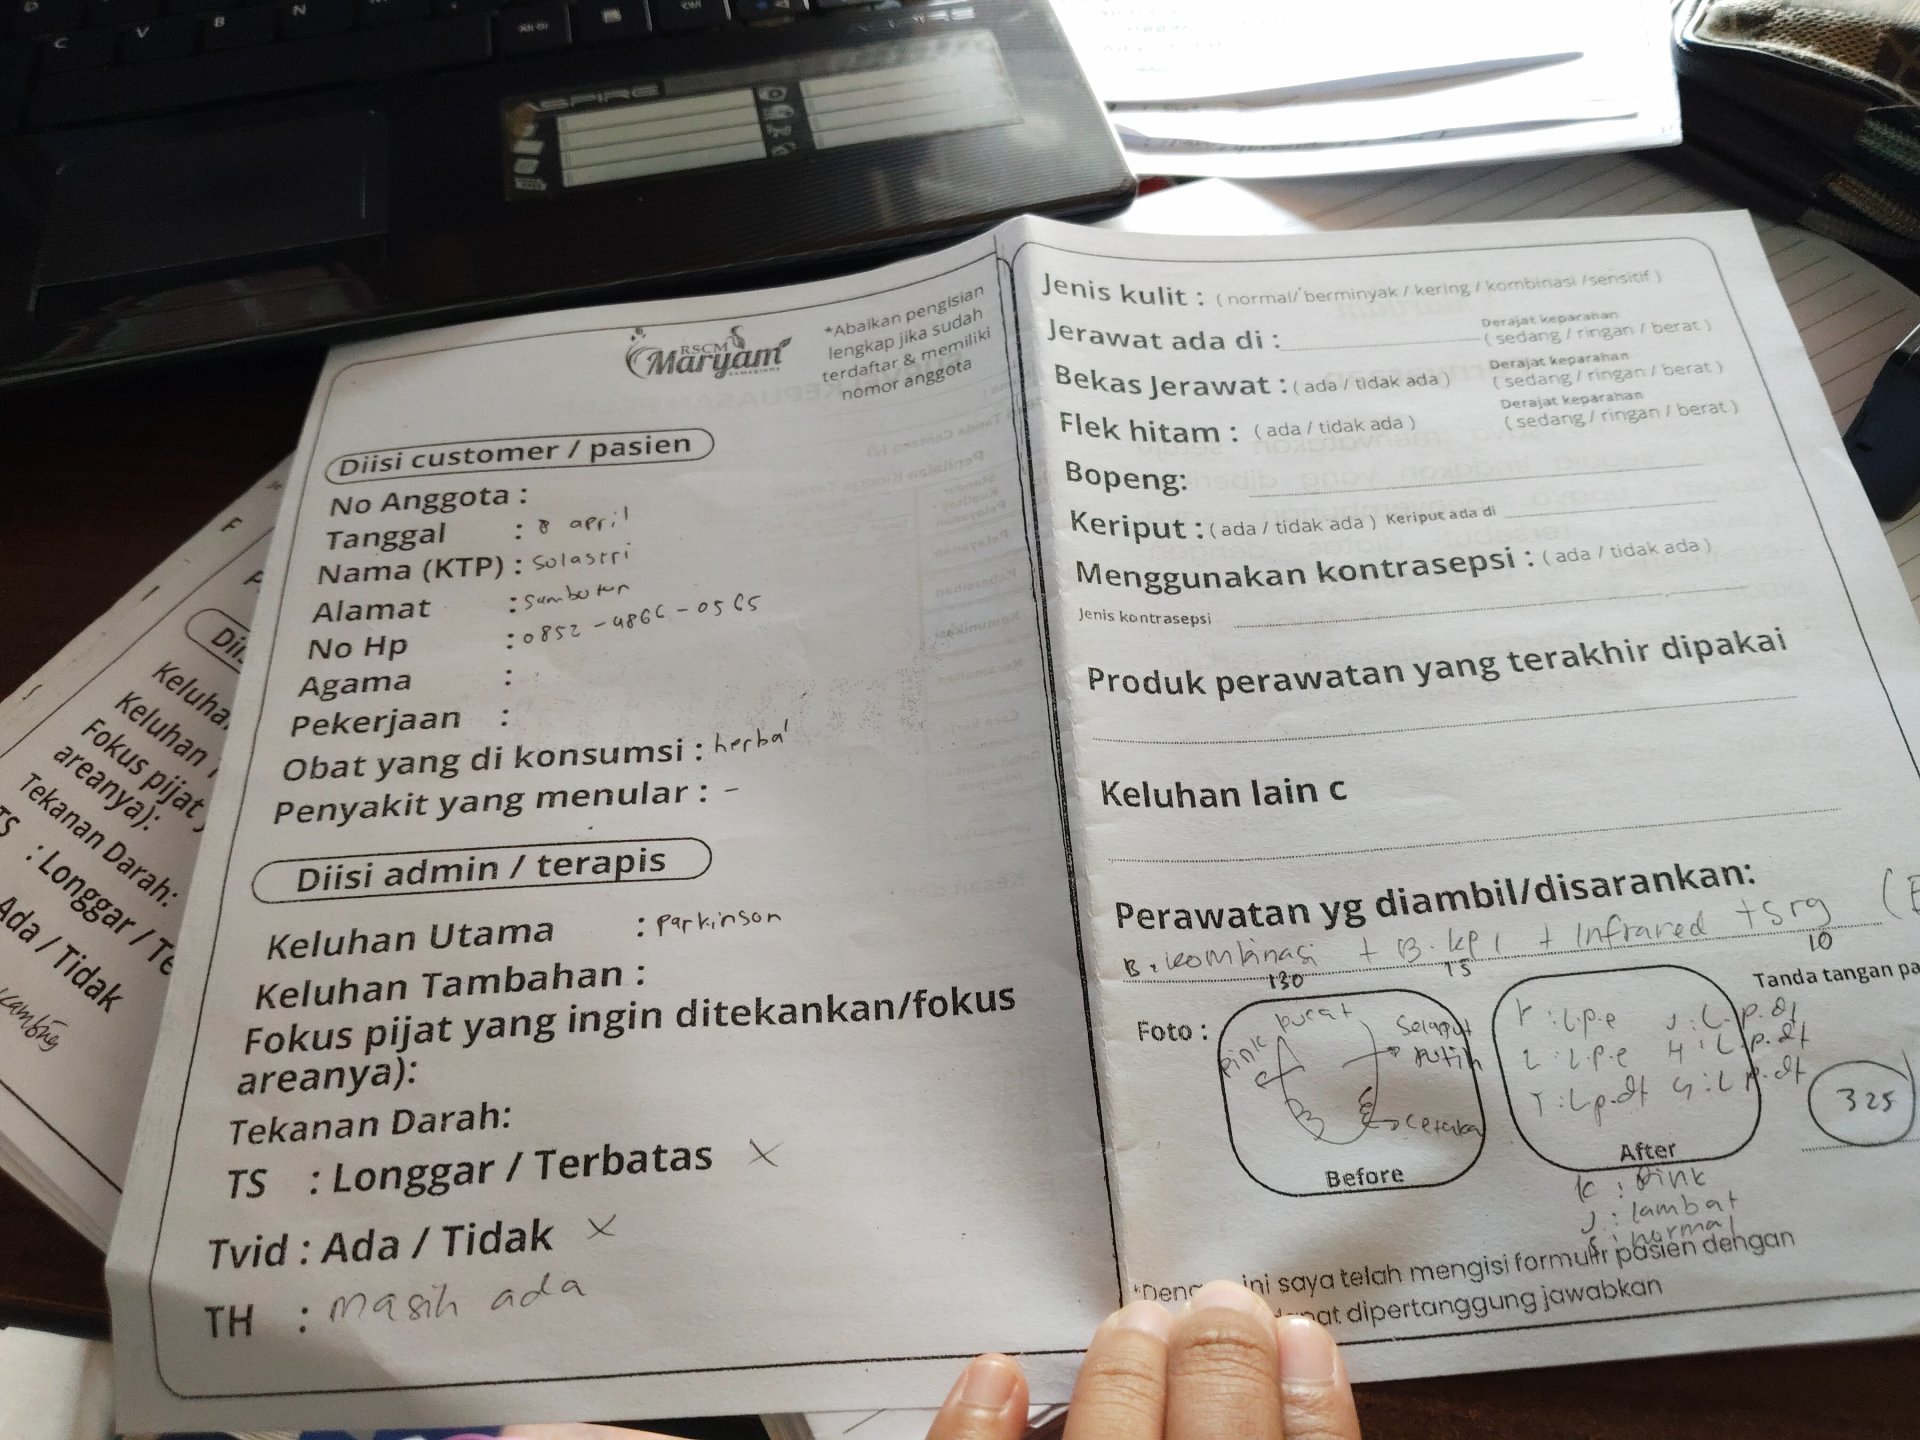 RSCM
Maryam
SAMARINDA
*Abaikan pengisian
lengkap jika sudah
terdaftar & memiliki
nomor anggota
Diisi customer / pasien
No Anggota :
Tanggal : 8 april
Nama (KTP) : Sulastri
Alamat : Sambutan
No Hp :
Agama :
Pekerjaan :
Obat yang di konsumsi : herbal
Penyakit yang menular : -
Diisi admin / terapis
Keluhan Utama : parkinson
Keluhan Tambahan :
Fokus pijat yang ingin ditekankan/fokus
areanya):
Tekanan Darah:
TS : Longgar / Terbatas X
Tvid : Ada / Tidak X
TH : masih ada
Jenis kulit : ( normal/ berminyak / kering / kombinasi /sensitif )
Jerawat ada di : Derajat keparahan
( sedang / ringan / berat )
Bekas Jerawat : ( ada / tidak ada ) Derajat keparahan
( sedang / ringan / berat )
Flek hitam : ( ada / tidak ada ) Derajat keparahan
( sedang / ringan / berat )
Bopeng:
Keriput : ( ada / tidak ada ) Keriput ada di
Menggunakan kontrasepsi : ( ada / tidak ada )
Jenis kontrasepsi
Produk perawatan yang terakhir dipakai
Keluhan lain c
Perawatan yg diambil/disarankan:
B. kombinasi + B. kpi + Infrared + srg
130 15 10
Tanda tangan pa
Foto :
pucat
pink
Selaput
putih
Before
r : l.p.e J : L.p.dt
L : L.p.e H : L.p.dt
T : L.p.dt G : L.p.dt
325
After
k : pink
J : lambat
: normal
ini saya telah mengisi formulir pasien dengan
dipertanggung jawabkan
Keluha
Keluhan
Fokus pijat
areanya):
Tekanan Darah:
TS : Longgar / Te
Ada / Tidak
ASPIRE
C V B N